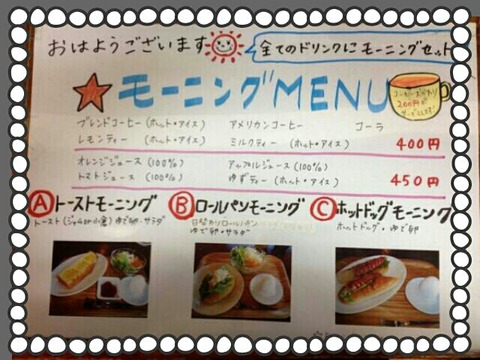 おはようございます
全てのドリンクにモーニングセット
モーニングMENU
コーヒーズーアリ
200円で
ブレンドコーヒー(ホット・アイス) アメリカンコーヒー コーラ
レモンティー (ホット・アイス) ミルクティー (ホット・アイス) 400円
オレンジジュース (100%) アップルジュース (100%)
トマトジュース (100%) ゆずティー (ホット・アイス) 450円
Ⓐトーストモーニング Ⓑロールパンモーニング Ⓒホットドッグモーニング
トースト(ジャムor小倉)ゆで卵・サラダ
日替わりロールパン
ゆで卵・サラダ
ホットドッグ・ゆで卵